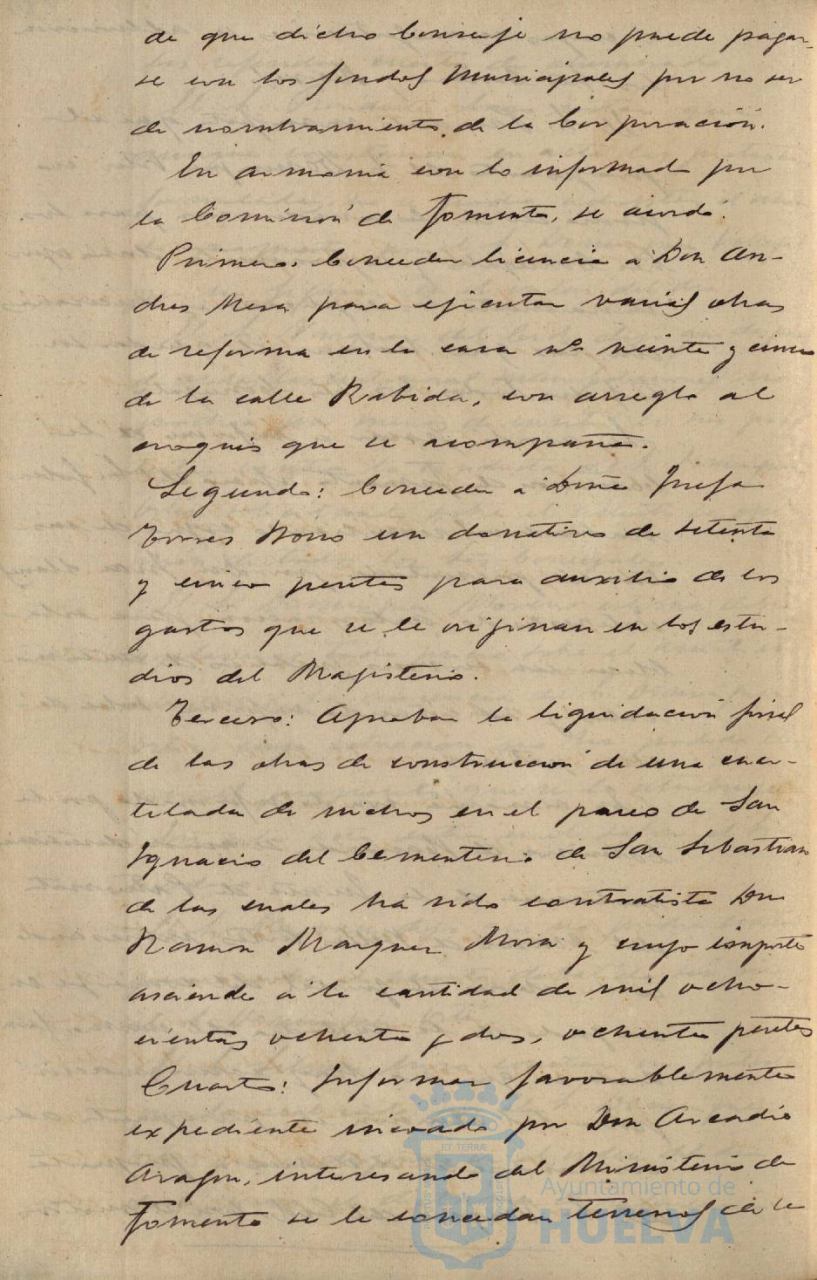 de que dicho Conserje no puede pagar-
se con los fondos Municipales por no ser
de nombramiento de la Corporación.
En armonia con lo informado por
la Comisión de Fomento, se acordó:
Primero. Conceder licencia a Don An-
dres Mesa para ejecutar varias obras
de reforma en la casa nº veinte y cinco
de la calle Rabida, con arreglo al
croquis que se acompaña.
Segundo: Conceder a Doña Josefa
Torres un donativo de setenta
y cinco pesetas para auxilio de los
gastos que se le originan en los estu-
dios del Magisterio.
Tercero: Aprobar la liquidación final
de las obras de construcción de una cuar-
telada de nichos en el paseo de San
Ignacio del Cementerio de San Sebastian
de las cuales ha sido contratista Don
Ramon Marquez Mora y cuyo importe
asciende á la cantidad de mil ocho-
cientas ochenta y dos, ochenta pesetas
Cuarto: Informar favorablemente
expediente incoado por Don Arcadio
Aragon, interesando del Ministerio de
Fomento se le concedan terrenos de la
ET TERRÆ
Ayuntamiento de
HUELVA